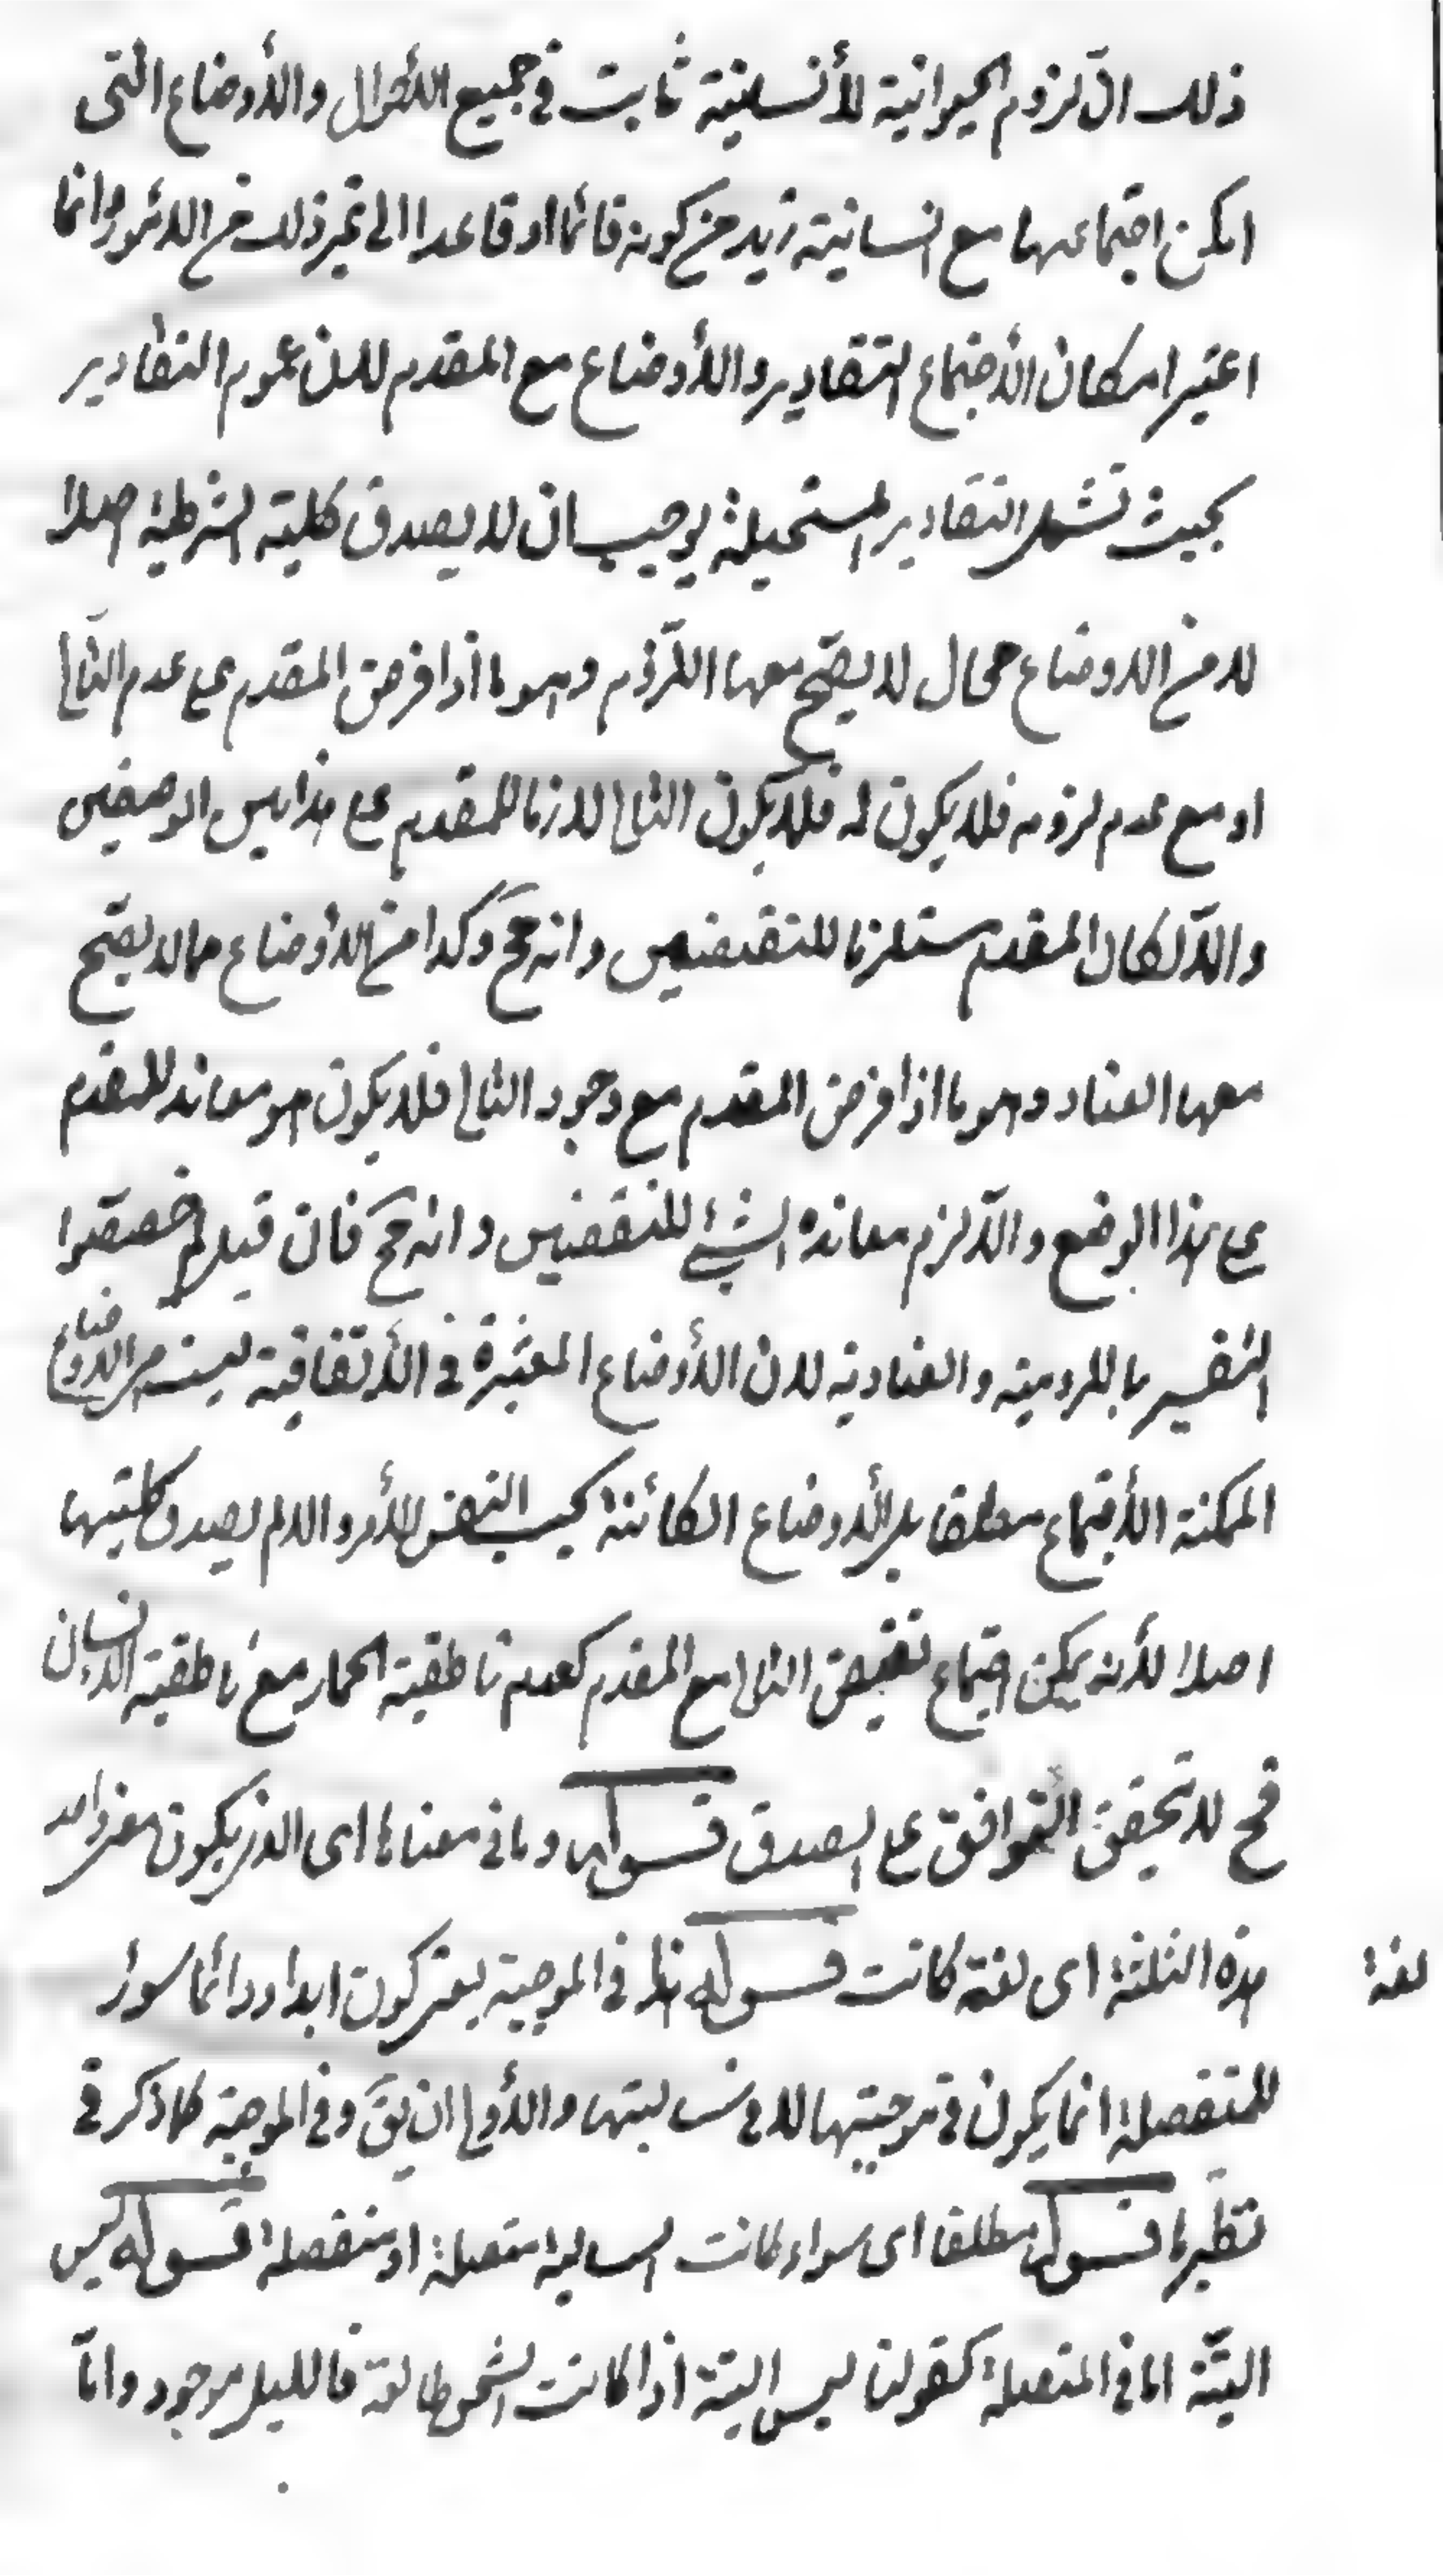 ذلك ان لزوم الحيوانية للأنسانية ثابت في جميع الأحوال والأوضاع التي
امكن اجتماعها مع انسانية زيد من كونه قائما او قاعدا الى غير ذلك من الأمور وانما
اعتبر امكان الأجتماع التقادير والأوضاع مع المقدم لان عموم التقادير
بحيث تشمل التقادير المستحيلة يوجب ان لا يصدق كلية الشرطية اصلا
لان من الاوضاع محال لا يصح معها اللزوم وهو ما اذا فرض المقدم مع عدم التالي
او مع عدم لزومه فلا يكون له فلا يكون التالي لازما للمقدم على هذين الوضعين
والا لكان المقدم مستلزما للنقيضين وانه مح وكذا من الأوضاع ما لا يصح
معها العناد وهو ما اذا فرض المقدم مع وجود التالي فلا يكون هو معاند للمقدم
على هذا الوضع والا لزم معانده الشئ للنقضين وانه مح فان قيل لم خصصوا
التفسير باللزومية والعنادية لان الأوضاع المعتبرة في الأتفاقية ليست من الاوضاع
الممكنة الأجتماع مطلقا بل الأوضاع الكائنة بحسب النفس الأمر والا لم يصدق كليتها
اصلا لأنه يمكن اجتماع نقيض التالي مع المقدم كعدم ناطقية الحمار مع ناطقية الانسان
فح لا تحقق التوافق على الصدق قوله وما في معناها اى الذي يكون معنى واحد
هذه الثلثة اى لغة كانت قوله هذا في الموجبة يعنى كون ابدا ودائما سورا
لغة
للمتفصلة انما يكون في موجبتها لا في سالبتها والأولى ان يق وفي الموجبة كما ذكر في
نظيرها قوله مطلقا اى سواء كانت السالبة متصلة او منفصلة قوله ليس
البتة اما في المتصلة كقولنا ليس البتة اذا كانت الشمس طالعة فالليل موجود واما